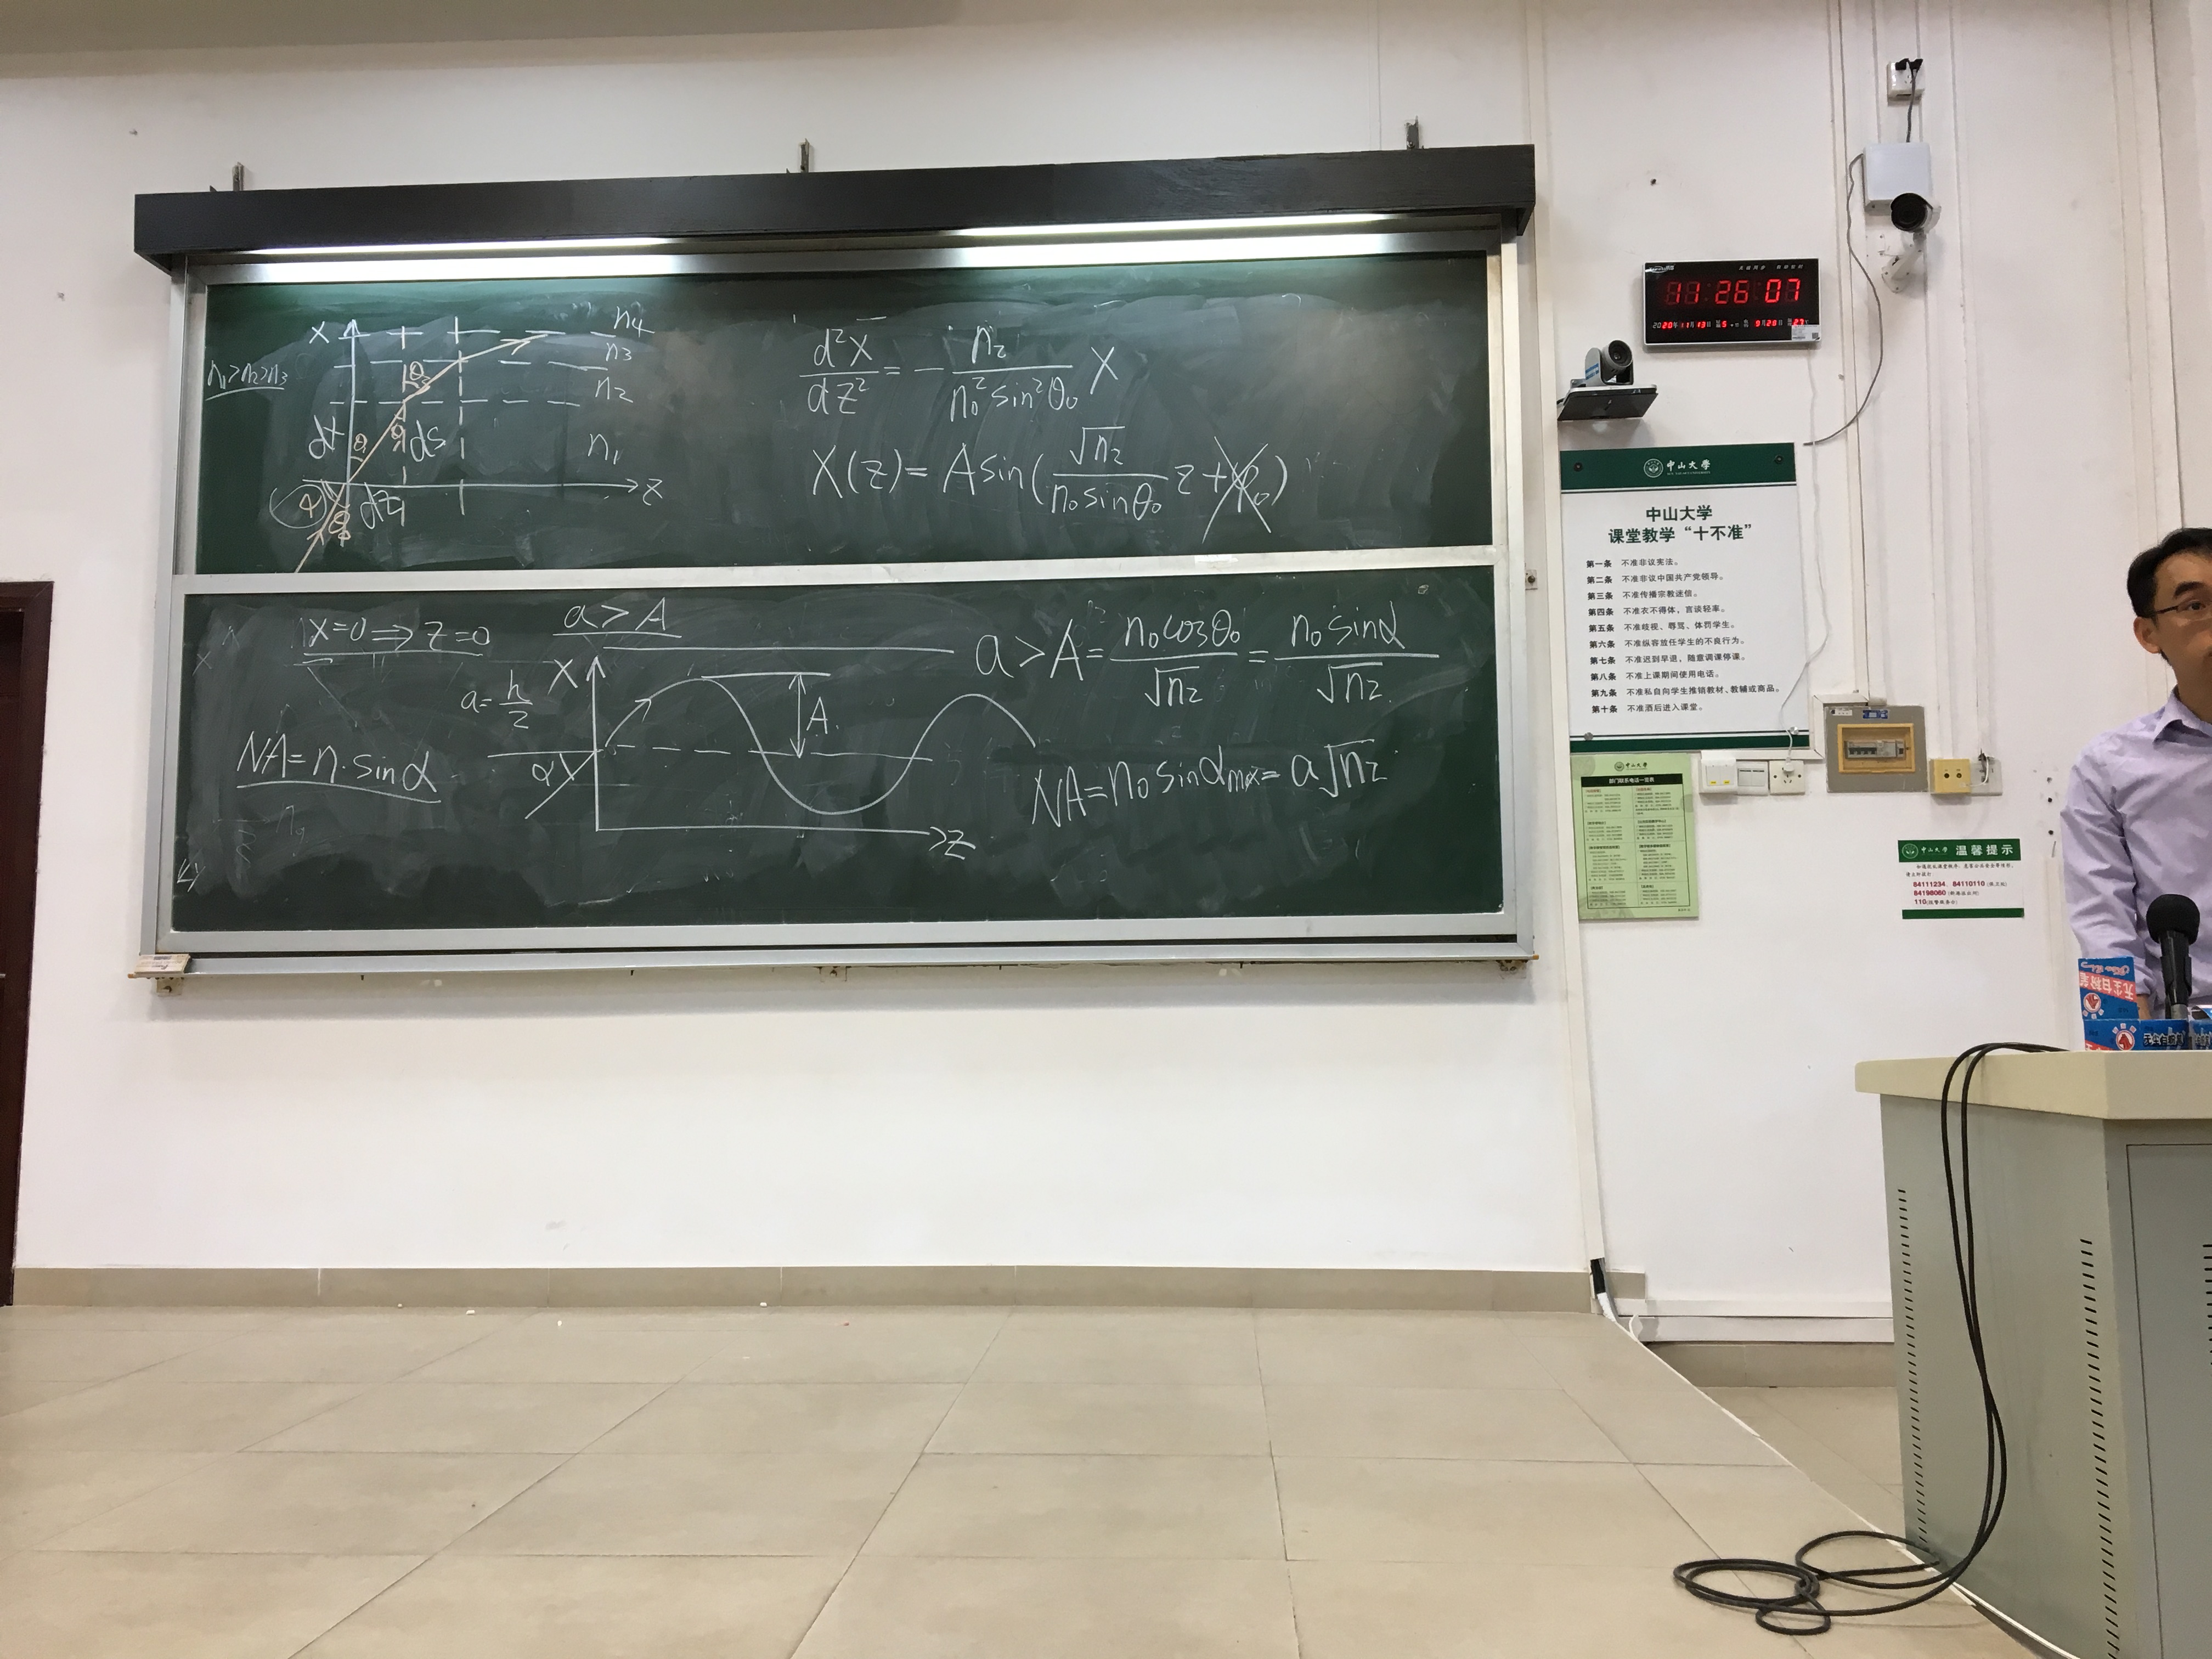 x
n₄
n₃
n₂
n₁>n₂>n₃
θ₂
dx
θ₁
θ₁
ds
n₁
z
α
θ₀
dz
d²x/dz² = - n₂/(n₀² sin²θ₀) x
x(z) = A sin(√n₂/(n₀ sinθ₀) z + φ₀)
x=0 ⟹ z=0
a > A
a = h/2
x
A
α
z
NA = n·sinα
a > A = n₀cosθ₀/√n₂ = n₀ sinα/√n₂
NA = n₀ sinαmax = a√n₂
11:26:07
2020年11月13日
星期5
9月28日
27℃
中山大学
中山大学
课堂教学“十不准”
第一条 不准非议宪法。
第二条 不准非议中国共产党领导。
第三条 不准传播宗教迷信。
第四条 不准衣不得体，言谈轻率。
第五条 不准歧视、辱骂、体罚学生。
第六条 不准纵容放任学生的不良行为。
第七条 不准迟到早退，随意调课停课。
第八条 不准上课期间使用电话。
第九条 不准私自向学生推销教材、教辅或商品。
第十条 不准酒后进入课堂。
中山大学
部门联系电话一览表
中山大学 温馨提示
84111234、84110110
84198060
110
无尘白粉笔